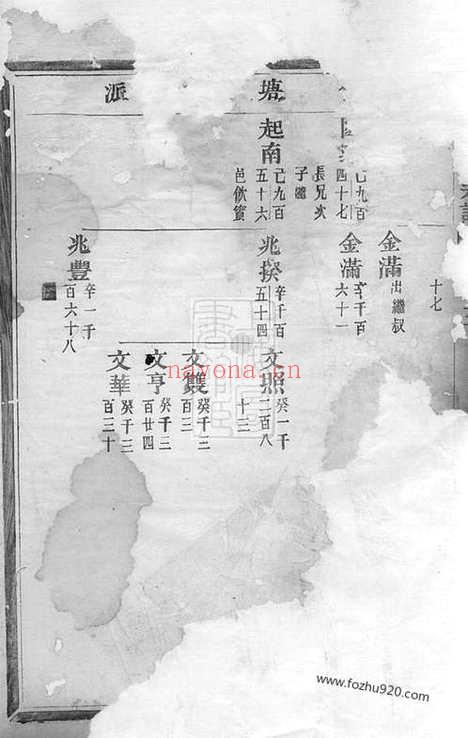 塘
派
十七
己九百
四十七
長兄次
子繼
起南
己九百
五十六
邑飲賓
金滿
出繼叔
金滿
辛千百
六十一
兆揆
辛千百
五十四
兆豐
辛一千
百六十八
文照
癸一千
二百八
十三
文䨇
癸千三
百三
文亨
癸千三
百廿四
文華
癸千三
百三十
nayona.cn
www.fozhu920.com